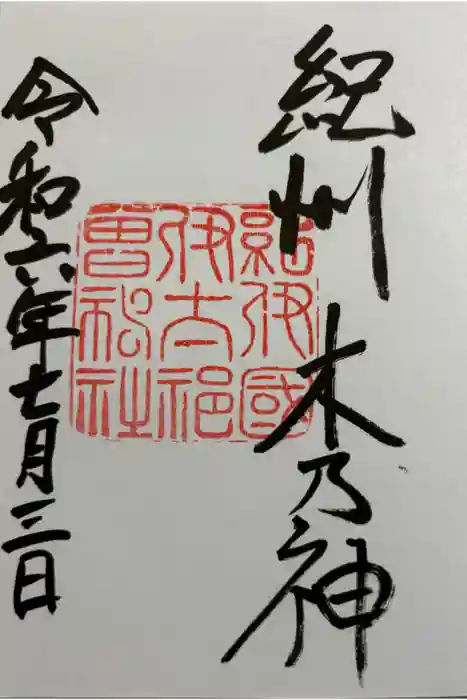 紀州 木乃神
紀伊國
伊太祁
曽神社
令和六年七月三日